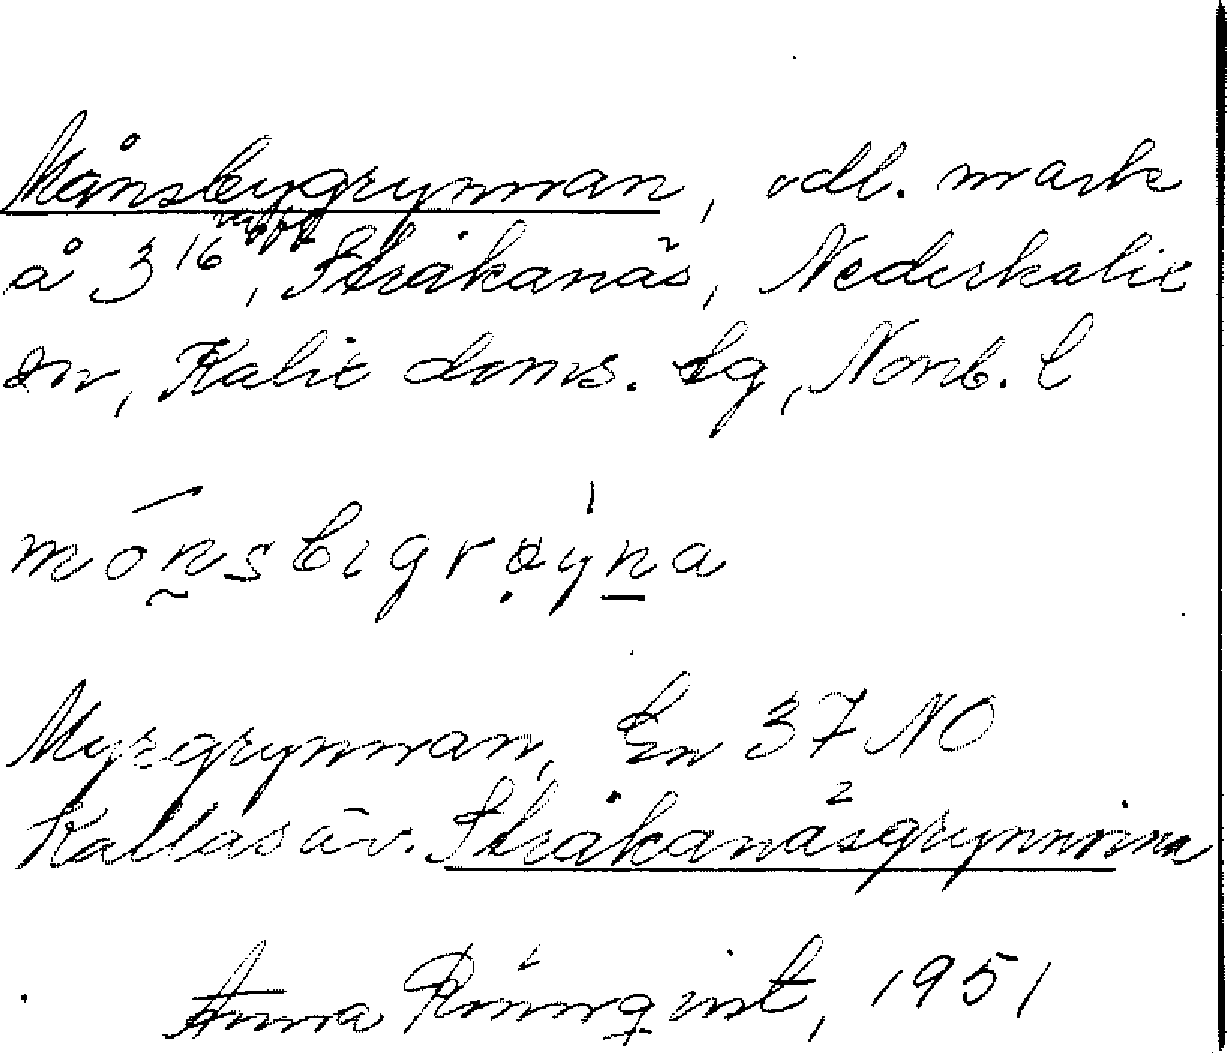 Månsbygrynnan, odl. mark
å 3 16, Stråkanäs, Nederkalix
sn, Kalix doms. tg, Norrb. l
mónsbigrøyna
Myrgrynnan, En 37 NO
Kallas äv. Stråkanäsgrynnorna
Anna Rönnqvist, 1951